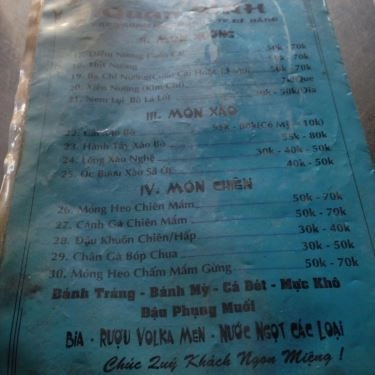 Quán
II. MÓN NƯỚNG
50k - 70k
18. Thịt Nướng
19. Ba Chỉ Nướng
20. Xiên Nướng (Kim Chi)
21. Nem Lụi Bò Lá Lốt 30k - 50k/Dĩa
III. MÓN XÀO
22. 10k)
23. Hành Tây Xào Bò 55k - 80k
24. Lòng Xào Nghệ 30k - 40k - 50k
25. Ốc Bươu Xào Sả Ớt 40k - 50k
IV. MÓN CHIÊN
26. Móng Heo Chiên Mắm 50k - 70k
27. Cánh Gà Chiên Mắm 50k - 70k
28. Đậu Khuôn Chiên/Hấp 30k - 40k
29. Chân Gà Bóp Chua 30k - 50k
30. Móng Heo Chấm Mắm Gừng 50k - 70k
Bánh Tráng - Bánh Mỳ - Cá Bót - Mực Khô
Đậu Phụng Muối
BIA - RƯỢU VOLKA MEN - NƯỚC NGỌT CÁC LOẠI
Chúc Quý Khách Ngon Miệng !